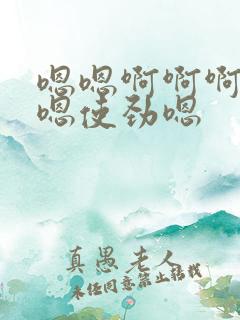 嗯嗯啊啊啊
嗯使劲嗯
真愚老人
未经同意禁止转载